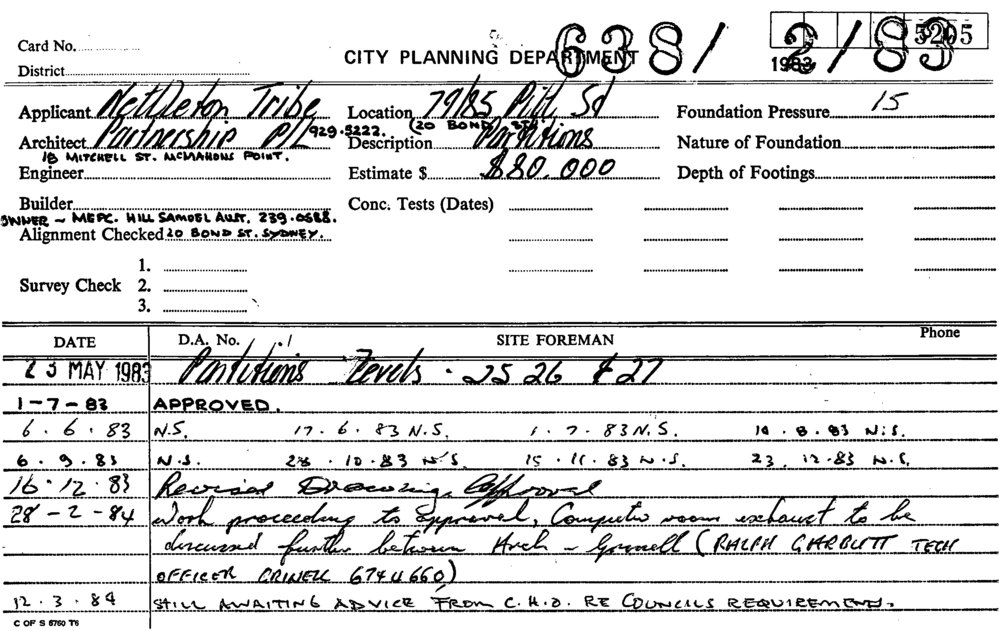 Card No.
638/2/83
5205
1983
CITY PLANNING DEPARTMENT
District
Applicant Nettleton Tribe
Location 79/85 Pitt St
Foundation Pressure 15
(20 BOND ST)
Architect Partnership P/L 929-5222.
Description Partitions
Nature of Foundation
18 MITCHELL ST. McMAHONS POINT.
Engineer
Estimate $ $80.000
Depth of Footings
Builder
Conc. Tests (Dates)
OWNER - MEPC. HILL SAMUEL AUST. 239.0688.
Alignment Checked 20 BOND ST. SYDNEY.
1.
Survey Check 2.
3.
DATE D.A. No. SITE FOREMAN Phone
23 MAY 1983 Partitions Levels - 25 26 & 27
1-7-83 APPROVED.
6.6.83 N.S. 17.6.83 N.S. 1.7.83 N.S. 10.8.83 N.S.
6.9.83 N.S. 28.10.83 N.S. 15.11.83 N.S. 23.12.83 N.S.
16.12.83 Revised Drawings Approved
28-2-84 Work proceeding to approval, Computer room exhaust to be
discussed further between Arch - (RALPH GARBUTT TECH
OFFICER 6744660)
12.3.84 STILL AWAITING ADVICE FROM C.H.O. RE COUNCILS REQUIREMENTS.
C OF S 6760 T6